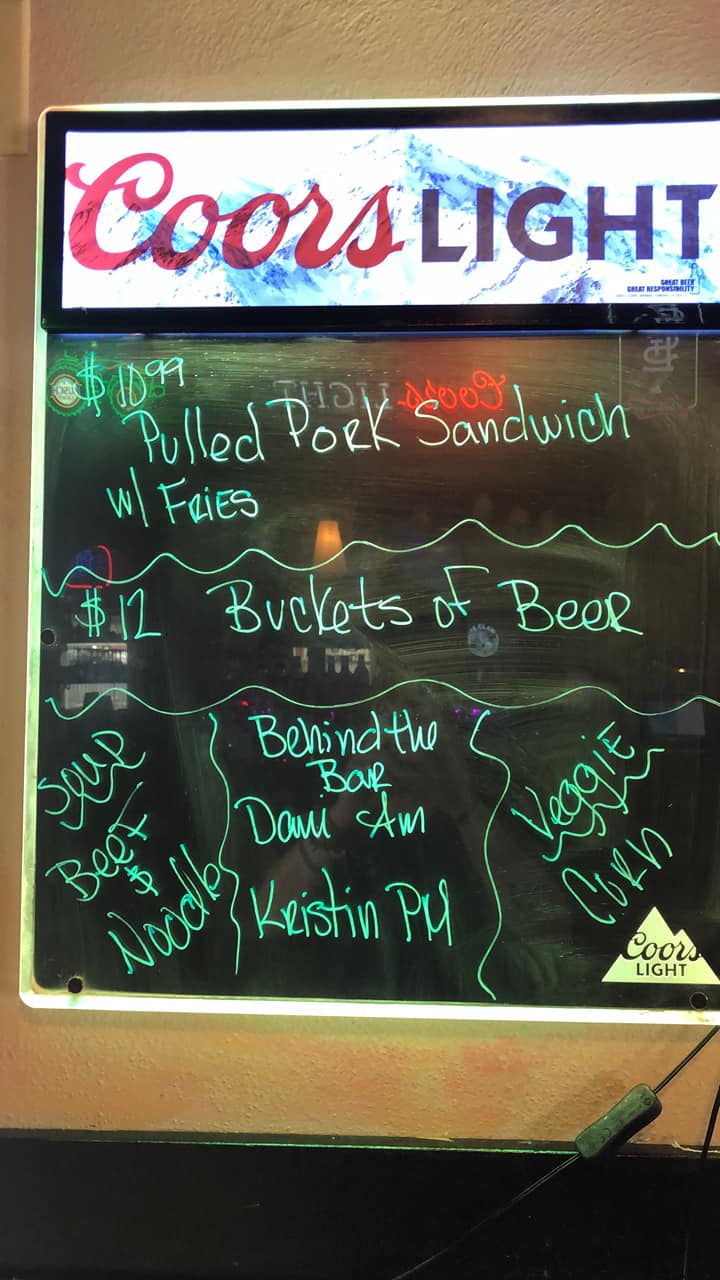 Coors LIGHT
GREAT BEER
GREAT RESPONSIBILITY
$10.99
Pulled Pork Sandwich
w/ Fries
$12 Buckets of Beer
Soup
Beef
&
Noodle
Behind the
Bar
Dani Am
Kristin PM
Veggie
Corn
Coors
LIGHT